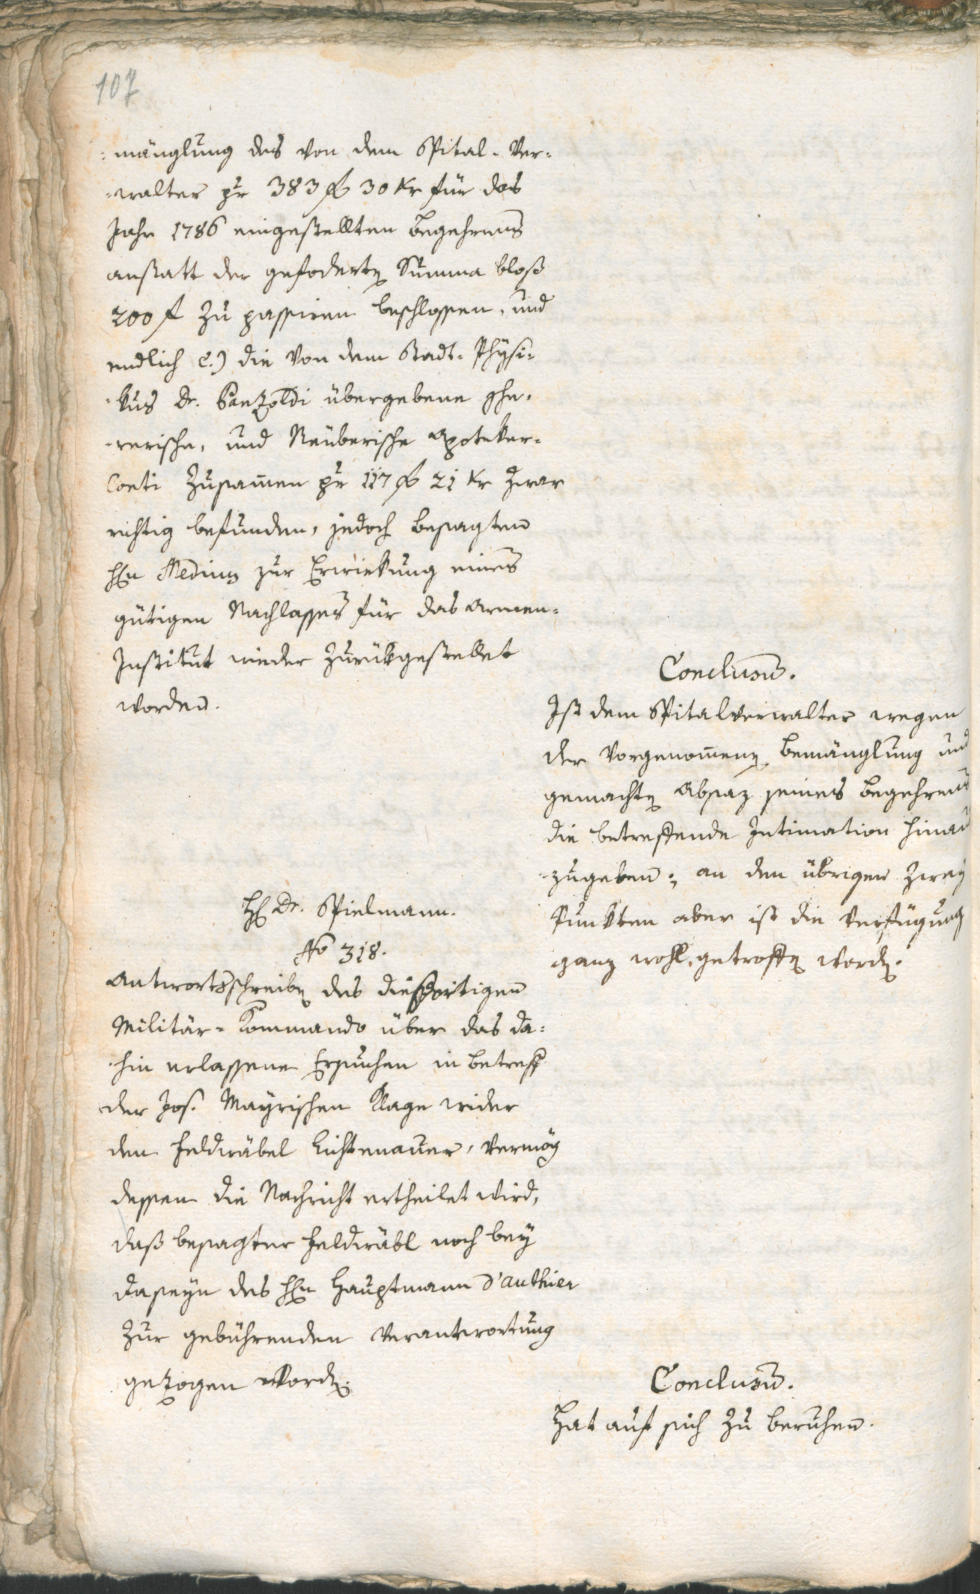 107
:mänglung des von dem Spital-Ver-
-walter pr 383 f 30 Kr für das
Jahr 1786 eingestellten Begehrens
anstatt der geforderten Summa bloß
200 f zu passiren beschlossen, und
endlich c.) die von dem Stadt-Physi-
-kus Dr. Panzoldi übergebene
-rerische, und Neuberische Apoteker-
Conti zusammen pr 117 f 21 Kr zwar
richtig befunden, jedoch besagten
HEn Medicus zur Erwirkung eines
gütigen Nachlasses für das Armen-
Institut wieder zurükgestellet
worden.
Conclusum.
Ist dem Spitalverwalter wegen
der vorgenommenen Bemänglung und
gemachten Absaz seines Begehrens
die betreffende Intimation hinaus
-zugeben; an den übrigen zwey
Punkten aber ist die Verfügung
ganz wohl getroffen worden.
HE Dr. Spielmann.
No 318.
Antwortsschreiben des dießortigen
Militär-Kommando über das da-
-hin erlassene Ersuchen in Betreff
der Jos. Mayrischen Klage wider
den Feldwäbel Lichtenauer, vermög
dessen die Nachricht ertheilet wird,
daß besagter Feldwäbl noch bey
Daseyn des HEn Hauptmann d'Authier
zur gebührenden Verantwortung
gezogen worden.
Conclusum.
Hat auf sich zu beruhen.